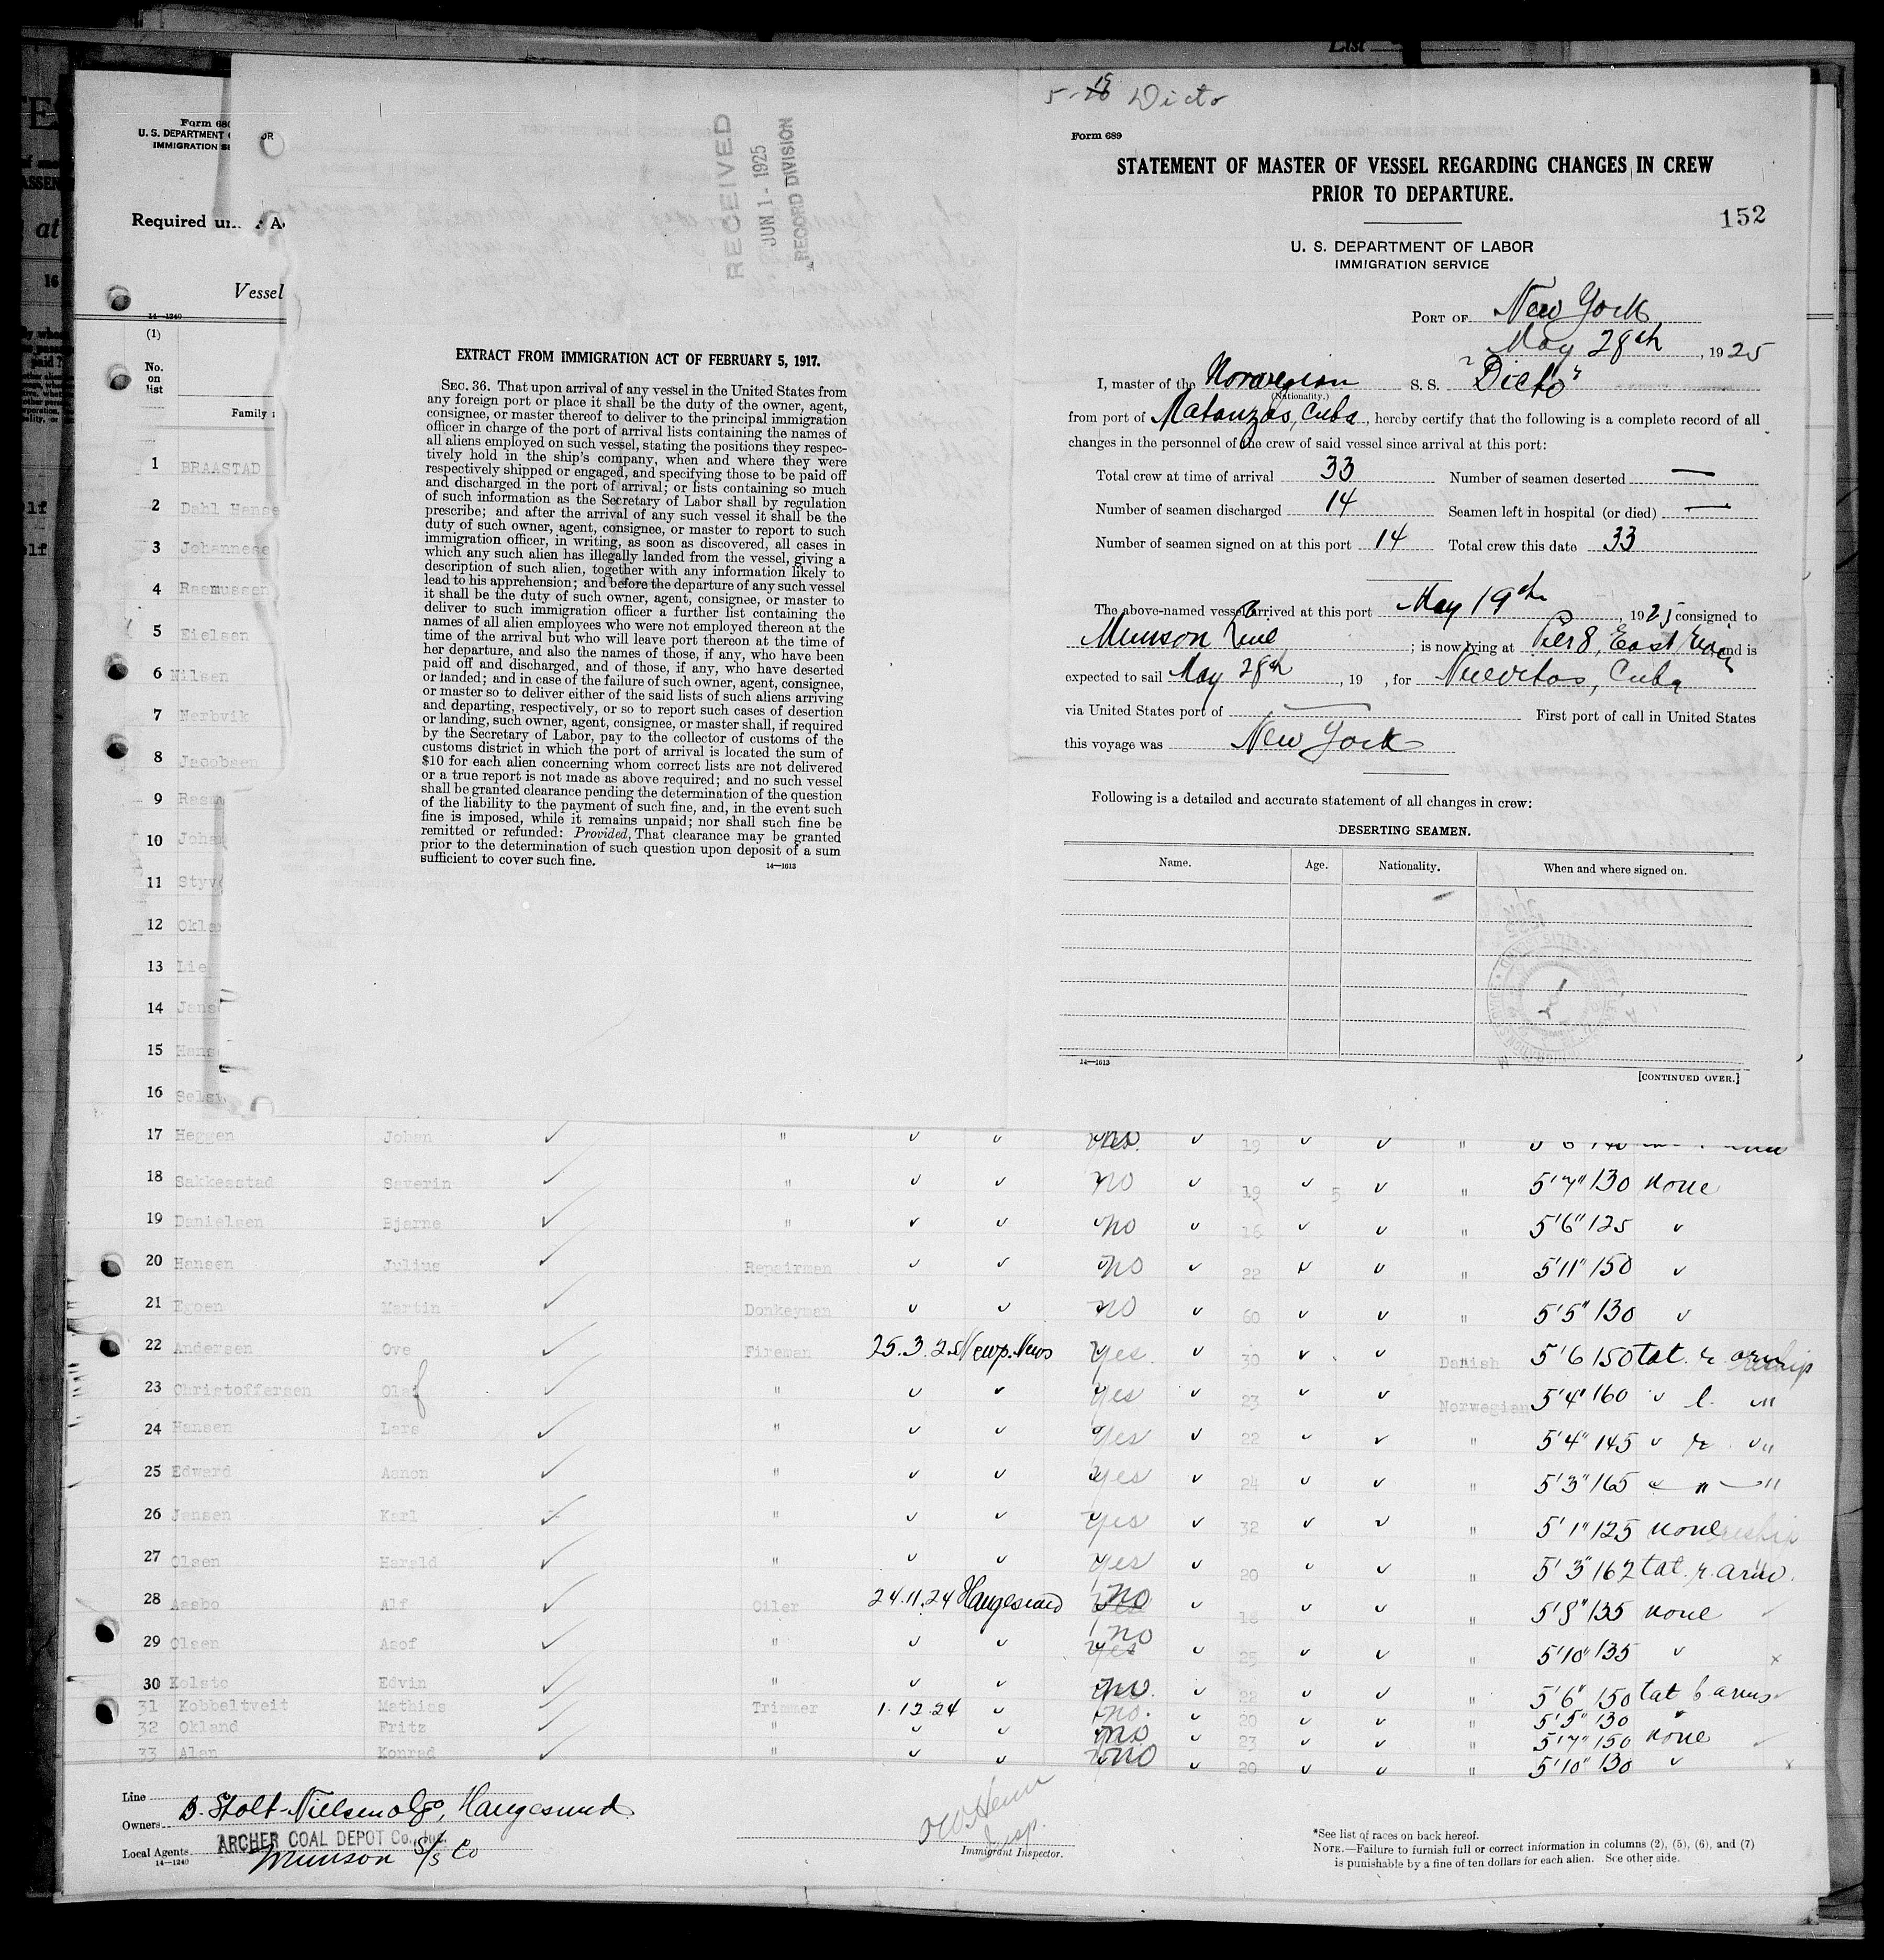 List
5-19 Dicto
Form 689
STATEMENT OF MASTER OF VESSEL REGARDING CHANGES IN CREW
PRIOR TO DEPARTURE.
152
U. S. DEPARTMENT OF LABOR
IMMIGRATION SERVICE
PORT OF New York
May 28th, 1925
I, master of the Norwegian S. S. "Dicto"
(Nationality.)
from port of Matanzas, Cuba, hereby certify that the following is a complete record of all
changes in the personnel of the crew of said vessel since arrival at this port:
Total crew at time of arrival 33 Number of seamen deserted —
Number of seamen discharged 14 Seamen left in hospital (or died) —
Number of seamen signed on at this port 14 Total crew this date 33
The above-named vessel arrived at this port May 19th, 1925 consigned to
Munson Line; is now lying at Pier 8, East River, and is
expected to sail May 28th, 19 , for Nuevitas, Cuba
via United States port of — First port of call in United States
this voyage was New York
Following is a detailed and accurate statement of all changes in crew:
DESERTING SEAMEN.
Name. Age. Nationality. When and where signed on.
14—1613
[CONTINUED OVER.]
RECEIVED
JUN 1 - 1925
RECORD DIVISION
EXTRACT FROM IMMIGRATION ACT OF FEBRUARY 5, 1917.
SEC. 36. That upon arrival of any vessel in the United States from
any foreign port or place it shall be the duty of the owner, agent,
consignee, or master thereof to deliver to the principal immigration
officer in charge of the port of arrival lists containing the names of
all aliens employed on such vessel, stating the positions they respec-
tively hold in the ship's company, when and where they were
respectively shipped or engaged, and specifying those to be paid off
and discharged in the port of arrival; or lists containing so much
of such information as the Secretary of Labor shall by regulation
prescribe; and after the arrival of any such vessel it shall be the
duty of such owner, agent, consignee, or master to report to such
immigration officer, in writing, as soon as discovered, all cases in
which any such alien has illegally landed from the vessel, giving a
description of such alien, together with any information likely to
lead to his apprehension; and before the departure of any such vessel
it shall be the duty of such owner, agent, consignee, or master to
deliver to such immigration officer a further list containing the
names of all alien employees who were not employed thereon at the
time of the arrival but who will leave port thereon at the time of
her departure, and also the names of those, if any, who have been
paid off and discharged, and of those, if any, who have deserted
or landed; and in case of the failure of such owner, agent, consignee,
or master so to deliver either of the said lists of such aliens arriving
and departing, respectively, or so to report such cases of desertion
or landing, such owner, agent, consignee, or master shall, if required
by the Secretary of Labor, pay to the collector of customs of the
customs district in which the port of arrival is located the sum of
$10 for each alien concerning whom correct lists are not delivered
or a true report is not made as above required; and no such vessel
shall be granted clearance pending the determination of the question
of the liability to the payment of such fine, and, in the event such
fine is imposed, while it remains unpaid; nor shall such fine be
remitted or refunded: Provided, That clearance may be granted
prior to the determination of such question upon deposit of a sum
sufficient to cover such fine.
14—1613
Form 680
U. S. DEPARTMENT OR
IMMIGRATION SE
Required un
Vessel
14—1240
(1)
No.
on
list
Family
1 BRAASTAD
2 Dahl Hanse
3 Johannese
4 Rasmussen
5 Eielsen
6 Nilsen
7 Nerbvik
8 Jacobsen
9 Rasm
10 Johan
11 Styv
12 Okla
13 Lie
14 Jans
15 Hans
16 Selsv
17 Heggen Johan " 19 "
18 Sakkesstad Severin " no 19 5 " 5'7" 130 none
19 Danielsen Bjarne " no 16 " 5'6" 125
20 Hansen Julius Repairman no 22 " 5'11" 150
21 Egoen Martin Donkeyman no 60 " 5'5" 130
22 Andersen Ove Fireman 25.3.25 Newp. News Yes 30 Danish 5'6 150 tat. r. arm
23 Christoffersen Olaf " Yes 23 Norwegian 5'4" 160 l. "
24 Hansen Lars " Yes 22 " 5'4" 145 r. "
25 Edward Aanon " yes 24 " 5'3" 165 " "
26 Jensen Karl " yes 32 " 5'1" 125 none
27 Olsen Harald " yes 20 " 5'3" 162 tat. r. arm.
28 Aasbo Alf Oiler 24.11.24 Haugesund no 18 " 5'8" 135 none
29 Olsen Asof " yes no 25 " 5'10" 135
30 Kolsto Edvin " no. 22 " 5'6" 150 tat b arms
31 Kobbeltveit Mathias Trimmer 1.12.24 no. 20 " 5'5" 130 "
32 Okland Fritz " no 23 " 5'7" 150 none
33 Alan Konrad " no 20 " 5'10" 130
Line
Owners B. Stolt-Nielsen & Co, Haugesund
ARCHER COAL DEPOT Co., Inc.
Local Agents Munson S/S Co
14—1240
Insp.
Immigrant Inspector.
*See list of races on back hereof.
NOTE.—Failure to furnish full or correct information in columns (2), (5), (6), and (7)
is punishable by a fine of ten dollars for each alien. See other side.